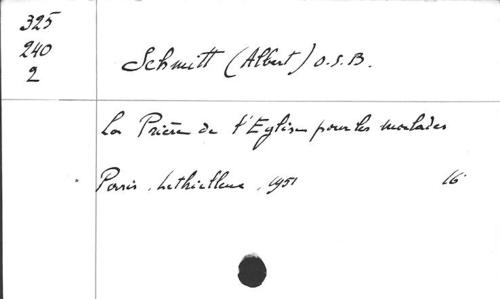 325
240
2
Schmitt (Albert) O.S.B.
La Prière de l'Eglise pour les malades
Paris, Lethielleux, 1951 16°